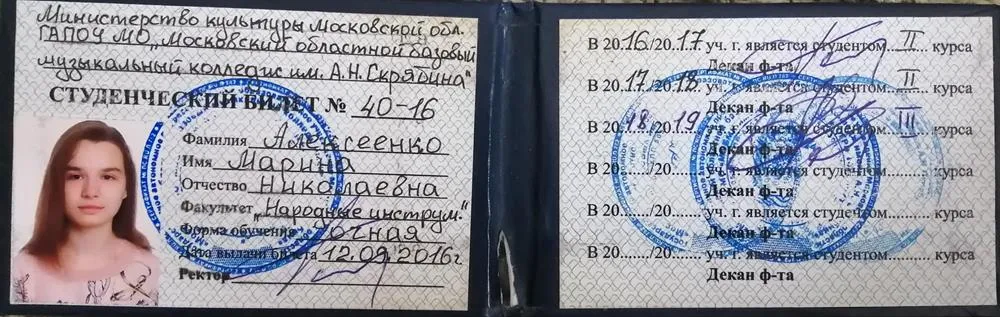 Министерство культуры Московской обл.
ГАПОУ МО „Московский областной базовый
музыкальный колледж им. А.Н. Скрябина"
СТУДЕНЧЕСКИЙ БИЛЕТ № 40-16
Фамилия Алексеенко
Имя Марина
Отчество Николаевна
Факультет „Народные инструм."
Форма обучения Очная
Дата выдачи билета 12.09.2016г
Ректор
В 2016/2017 уч. г. является студентом II курса
Декан ф-та
В 2017/2018 уч. г. является студентом II курса
Декан ф-та
В 2018/2019 уч. г. является студентом III курса
Декан ф-та
В 20......./20....... уч. г. является студентом.......... курса
Декан ф-та
В 20......./20....... уч. г. является студентом.......... курса
Декан ф-та
В 20......./20....... уч. г. является студентом.......... курса
Декан ф-та